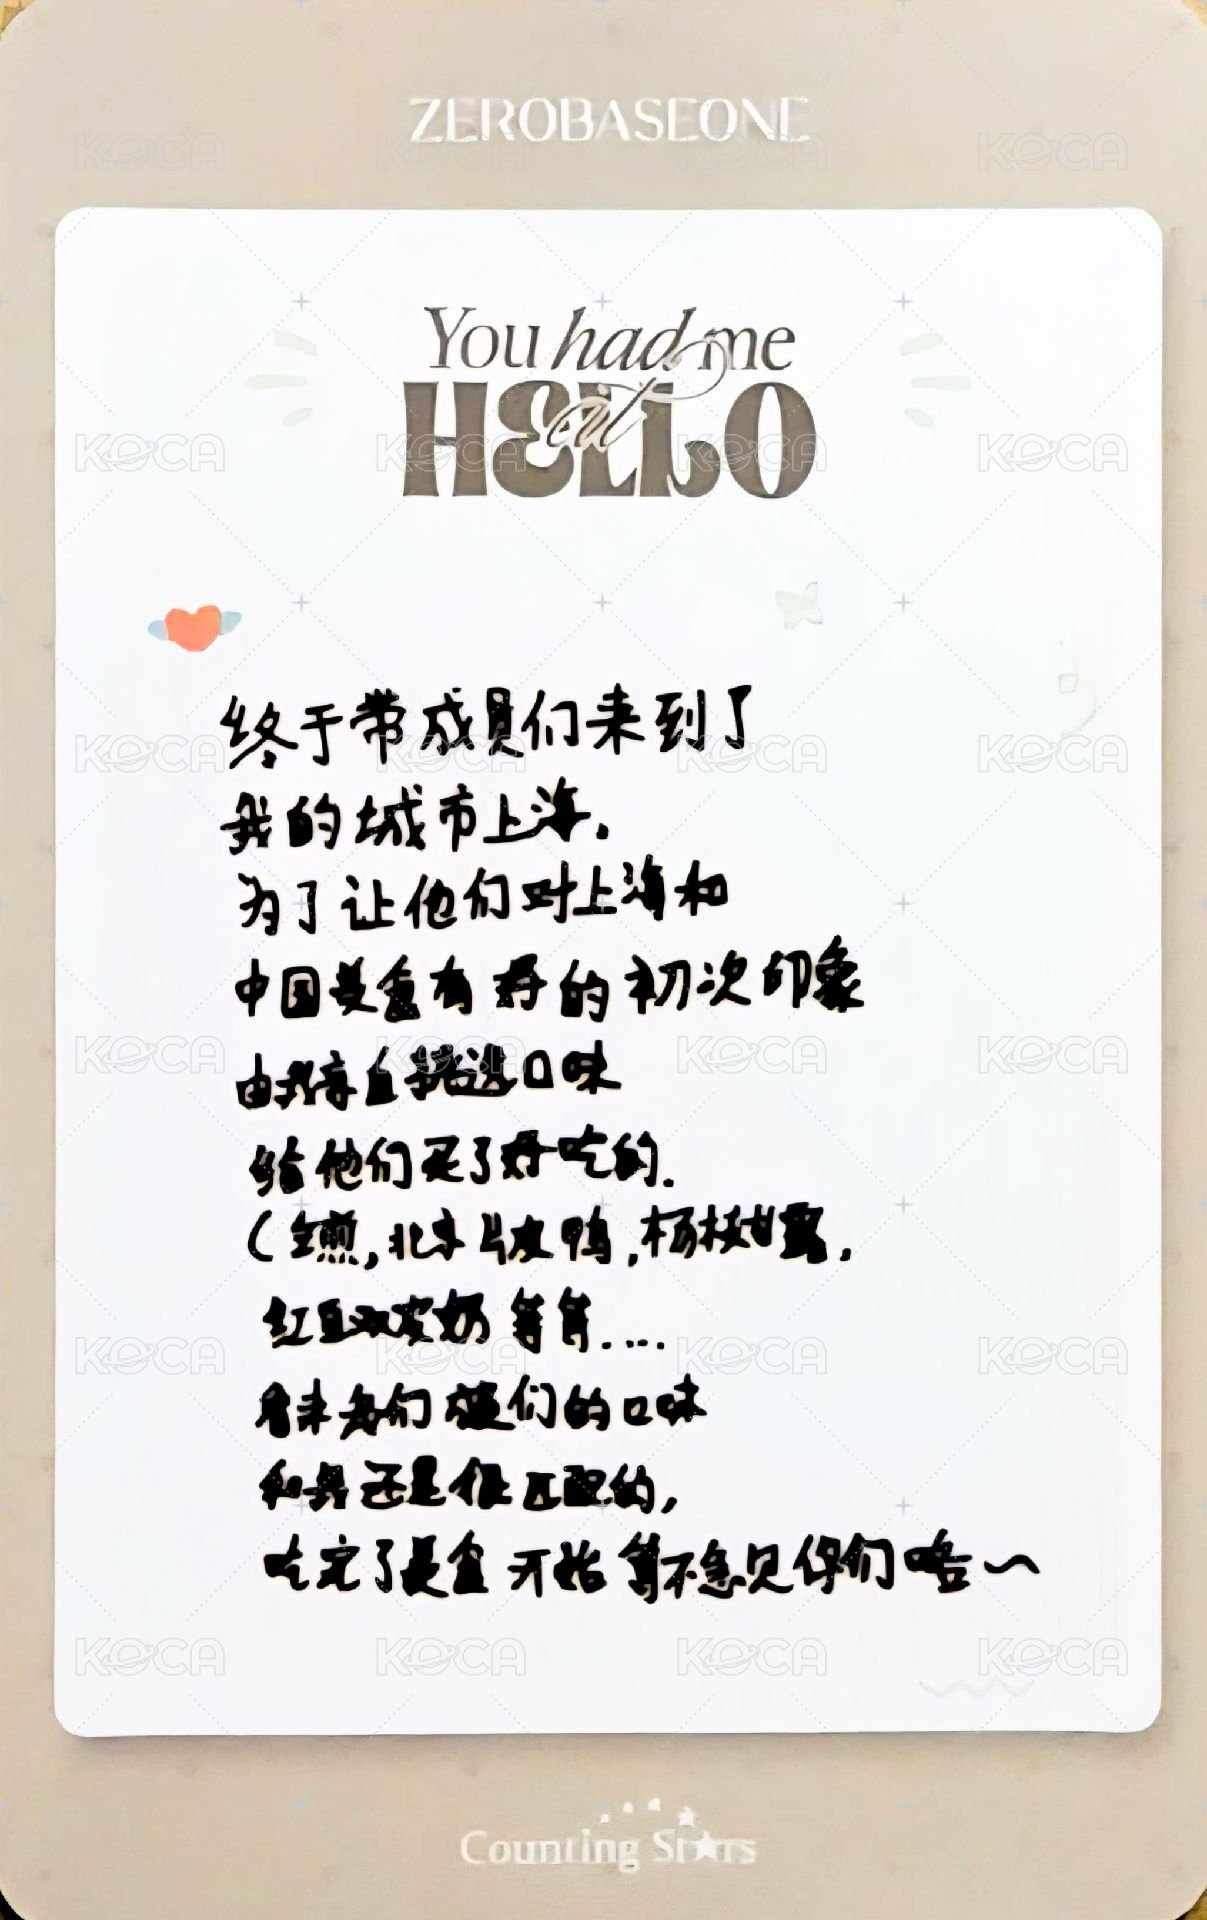 ZEROBASEONE
You had me
at
HELLO
终于带成员们来到了
我的城市上海.
为了让他们对上海和
中国是会有好的初次印象
由我亲自挑选口味
给他们买了好吃的.
(生煎,北京片皮鸭,杨枝甘露,
红豆双皮奶等等....
看来我们 们的口味
和我还是很匹配的,
吃完了是会开始等不急见你们咯~
Counting Stars
KOCA